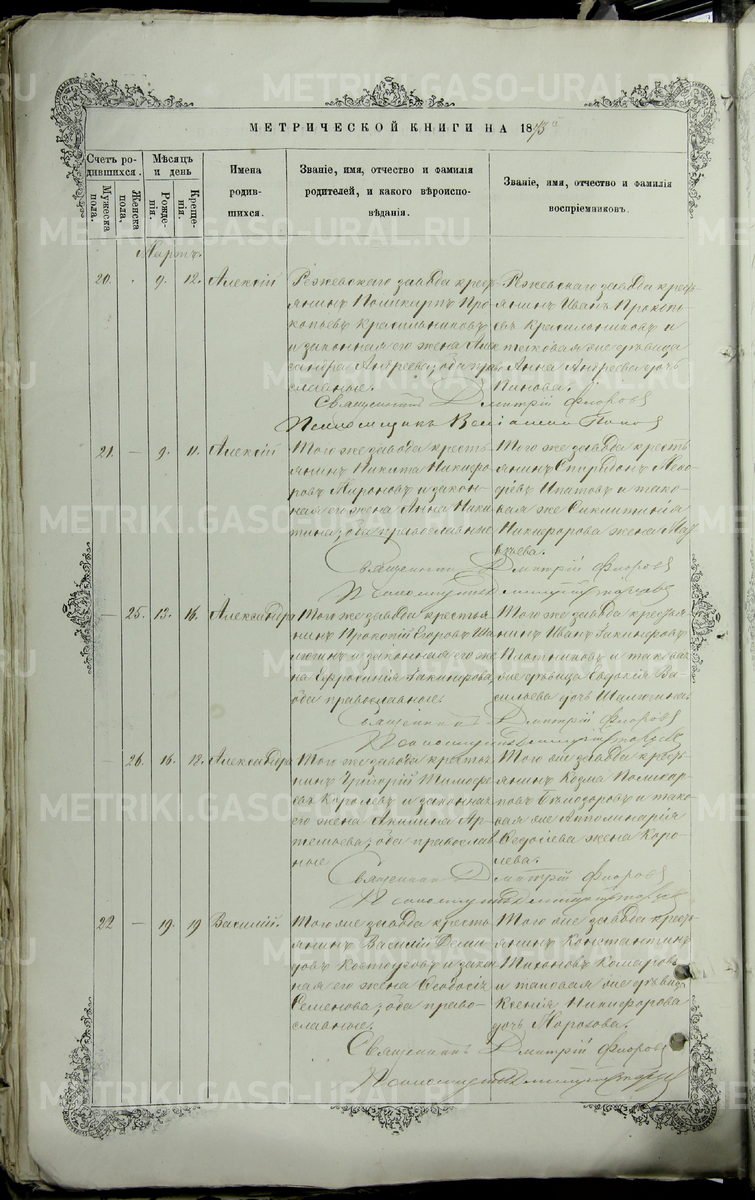 METRIKI.GASO-URAL.RU
МЕТРИЧЕСКОЙ КНИГИ НА 1873
Счетъ родившихся.
Мужеска пола.
Женска пола.
Мѣсяцъ и день
Рожденія.
Крещенія.
Имена родившихся.
Званіе, имя, отчество и фамилія родителей, и какого вѣроисповѣданія.
Званіе, имя, отчество и фамилія воспріемниковъ.
Мартъ.
20. 9. 12. Алексій
Режевскаго завода крестьянинъ Поликарпъ Прокопьевъ Красильниковъ и законная его жена Александра Андреева, оба православные.
Режевскаго завода крестьянинъ Иванъ Прокопьевъ Красильниковъ и таковая же дѣвица Анна Андреева дочь
Священникъ Дмитрій Флоровъ
Псаломщикъ Поповъ
21. — 9. 11. Алексій
Того же завода крестьянинъ Никита Никифоровъ Мироновъ и законная его жена Анна Никитина, оба православные
Того же завода крестьянинъ Спиридонъ Ипатовъ и таковая же Никифорова жена
Священникъ Дмитрій Флоровъ
— 25. 13. 16. Александра
Того же завода крестьянинъ Прокопій Егоровъ и законная его жена Ефросинія оба православные.
Того же завода крестьянинъ Иванъ Плотниковъ и таковая же дѣвица Евдокія Васильева дочь
Священникъ Дмитрій Флоровъ
— 26. 16. 18. Александра
Того же завода крестьянинъ Григорій Тимофеевъ Королевъ и законная его жена Акилина Артемьева, оба православные
Того же завода крестьянинъ Козма Поликарповъ и таковая же Апполинарія Федосіева жена Королева.
Священникъ Дмитрій Флоровъ
22 — 19. 19 Василій.
Того же завода крестьянинъ Василій Демидовъ Костоусовъ и законная его жена Феодосія Семенова, оба православные.
Того же завода крестьянинъ Константинъ Тихоновъ Комаровъ и таковая же дѣвица Ксенія Никифорова дочь Морохова.
Священникъ Дмитрій Флоровъ